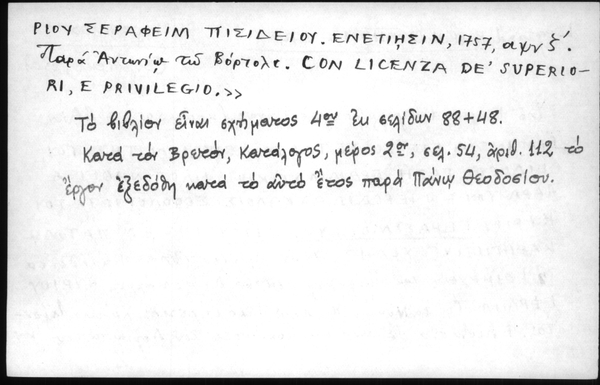 ΡΙΟΥ ΣΕΡΑΦΕΙΜ ΠΙΣΙΔΕΙΟΥ. ΕΝΕΤΙῌΣΙΝ, 1757, αψνζ΄.
Παρά Ἀντωνίῳ τῶ Βόρτολι. CON LICENZA DE' SUPERIO-
RI, E PRIVILEGIO.>>
Τό βιβλίον εἶναι σχήματος 4ον ἐκ σελίδων 88+48.
Κατά τόν Βρετόν, Κατάλογος, μέρος 2ον, σελ. 54, ἀριθ. 112 τό
ἔργον ἐξεδόθη κατά τό αὐτό ἔτος παρά Πάνῳ Θεοδοσίου.